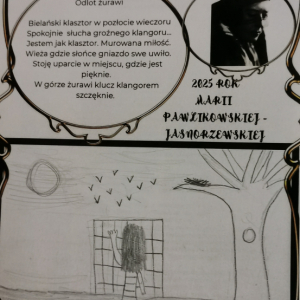 Odlot żurawi
Bielański klasztor w pozłocie wieczoru
Spokojnie słucha groźnego klangoru...
Jestem jak klasztor. Murowana miłość.
Wieża gdzie słońce gniazdo swe uwiło.
Stoję uparcie w miejscu, gdzie jest
pięknie.
W górze żurawi klucz klangorem
szczęknie.
2025 ROK
MARII
PAWLIKOWSKIEJ -
JASNORZEWSKIEJ